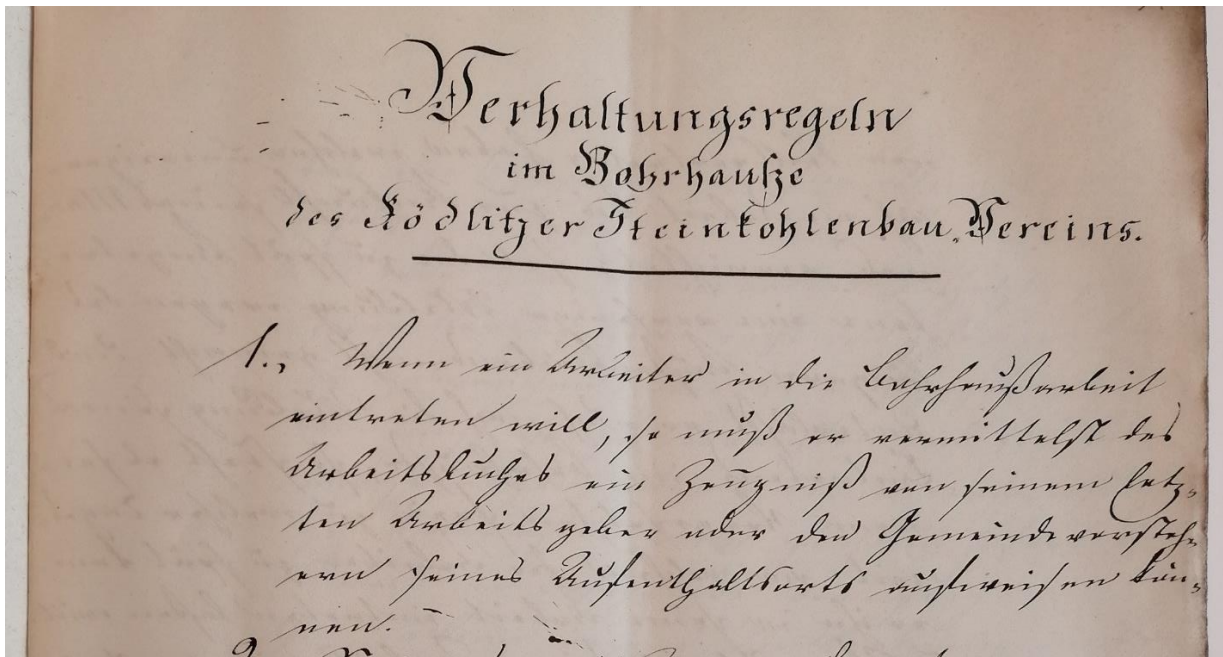 Verhaltungsregeln
im Bohrhauße
des Rödlitzer Steinkohlenbau-Vereins.
1., Wenn ein Arbeiter in die Bohrhaußarbeit
eintreten will, so muß er vermittelst des
Arbeitsbuches ein Zeugniß von seinem letz-
ten Arbeitsgeber oder den Gemeindevorsteh-
ern seines Aufenthaltsorts aufweisen kön-
nen.
2.